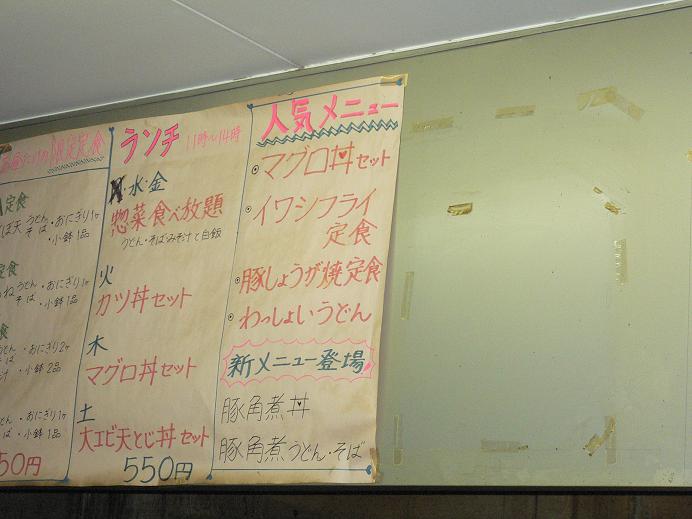 限定定食
定食
天うどん・おにぎり1ヶ
そば・小鉢1品
定食
うどん・おにぎり1ヶ
そば・小鉢1品
うどん・おにぎり2ヶ
・小鉢2品
・おにぎり1ヶ
・小鉢1品
50円
ランチ 11時〜14時
水・金
惣菜食べ放題
うどん・そばみそ汁と白飯
火
カツ丼セット
木
マグロ丼セット
土
大エビ天とじ丼セット
550円
人気メニュー
マグロ丼セット
イワシフライ
定食
豚しょうが焼定食
わっしょいうどん
新メニュー登場!
豚角煮丼
豚角煮うどん・そば